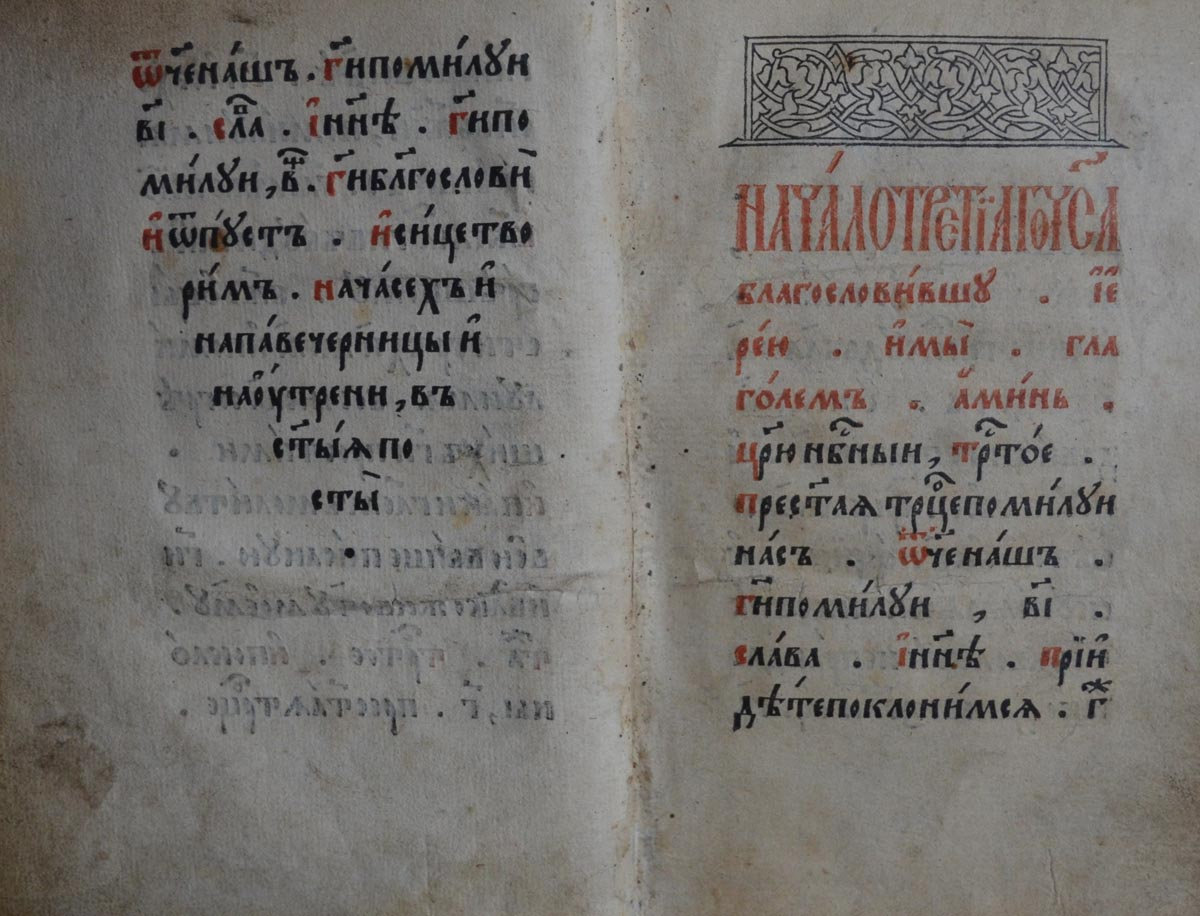 Ѿч҃ена́шъ . Гⷭ҇ипоми́лꙋи
в҃і . сла̑ . і҆ нн҃ѣ . гⷭ҇ипо
ми́лꙋи , в҃ . гⷭ҇ибл҃гослови̏
и҆ѿпꙋ́стъ . и҆си́цетво
ри́мъ . нача́сехъ и҆
напа́вечерницы и҆
нао҆у́трени , въ
ст҃ы́ѧ по
сты̏
нача́лотре́тїѧгочⷭ҇а
благослови́вшꙋ . і҆е
ре́ю . и҆мы̏ . гла
го́лемъ . а҆ми́нь .
цр҃юнбⷭ҇ныи , трⷭ҇то́е .
прест҃аѧ трⷪ҇цепоми́лꙋи
на́съ . ѿч҃ена́шъ .
гⷭ҇ипоми́лꙋи , в҃і .
сла́ва . і҆ нн҃ѣ . прїи
дѣ́тепоклони́мсѧ . г҃